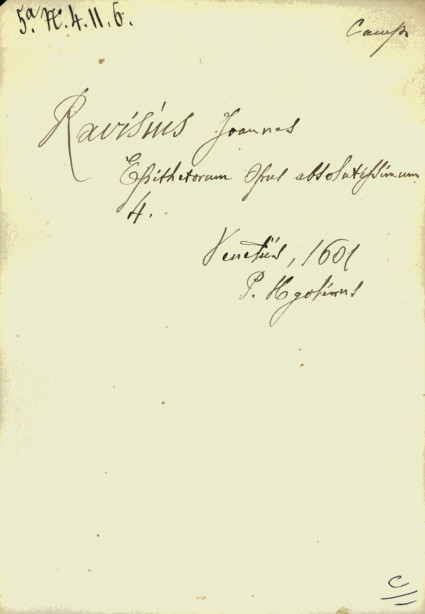 5ª H. 4. 11. 6.
Camp
Ravisius Joannes
Epithetorum Opus absolutissimum
4.
Venetiis, 1601
P. Ugolinus
C